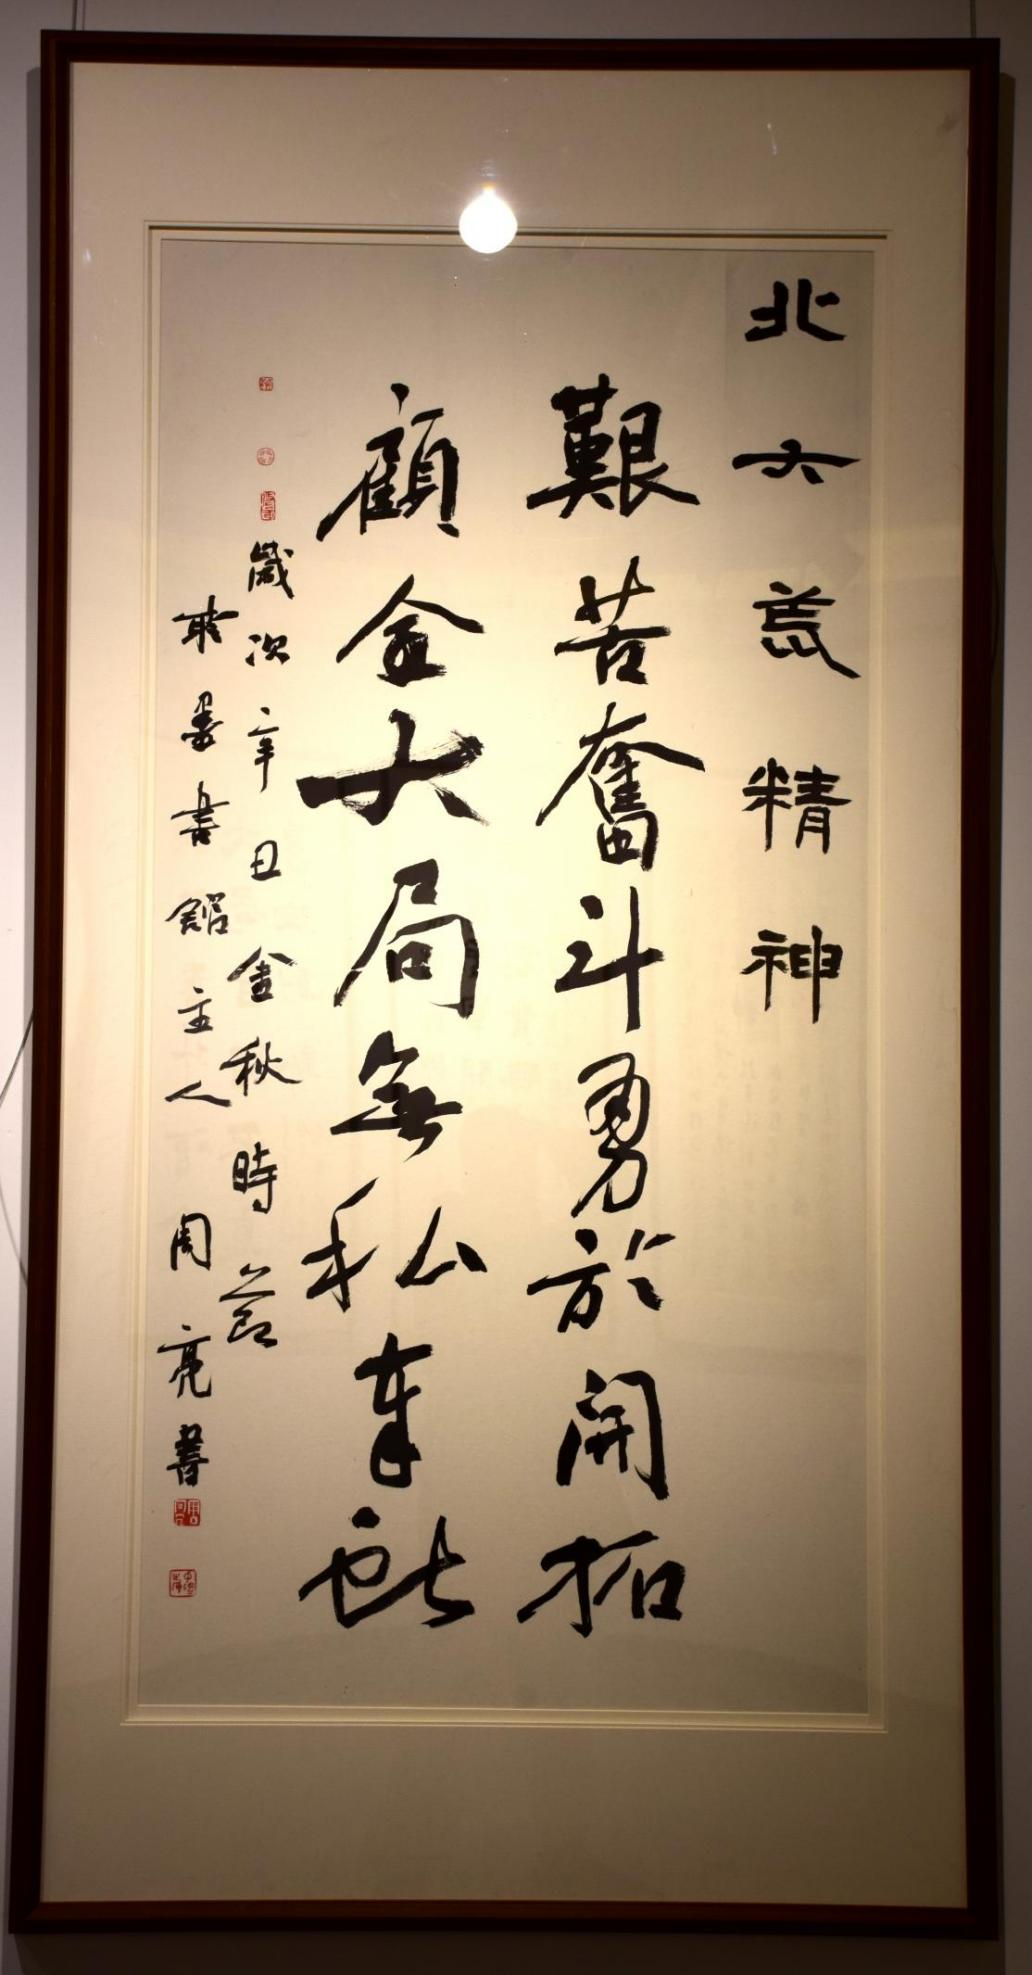 北大荒精神
艱苦奮斗勇於開拓
顧全大局無私奉献
歲次辛丑金秋時節
耿墨書館主人周亮書